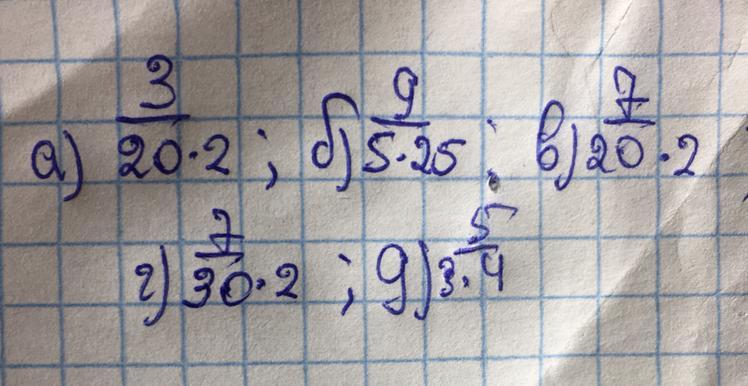 а) 3/20·2 ; б) 9/5·25 ; в) 7/20·2
г) 7/30·2 ; д) 5/3·4